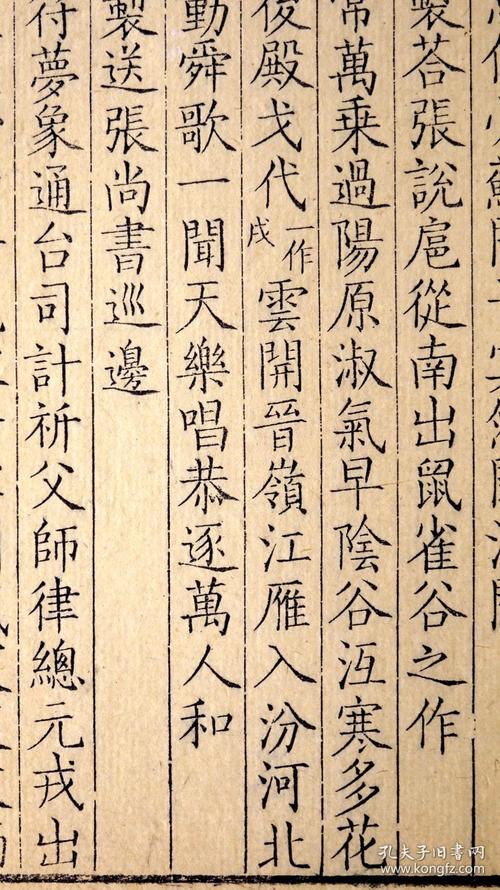 製荅張說扈從南出鼠雀谷之作
常萬乘過陽原淑氣早陰谷沍寒多花
殿戈代一作戍雲開晉嶺江雁入汾河北
動舜歌一聞天樂唱恭逐萬人和
製送張尚書巡邊
符夢象通台司計祈父師律總元戎出
孔夫子旧书网
www.kongfz.com